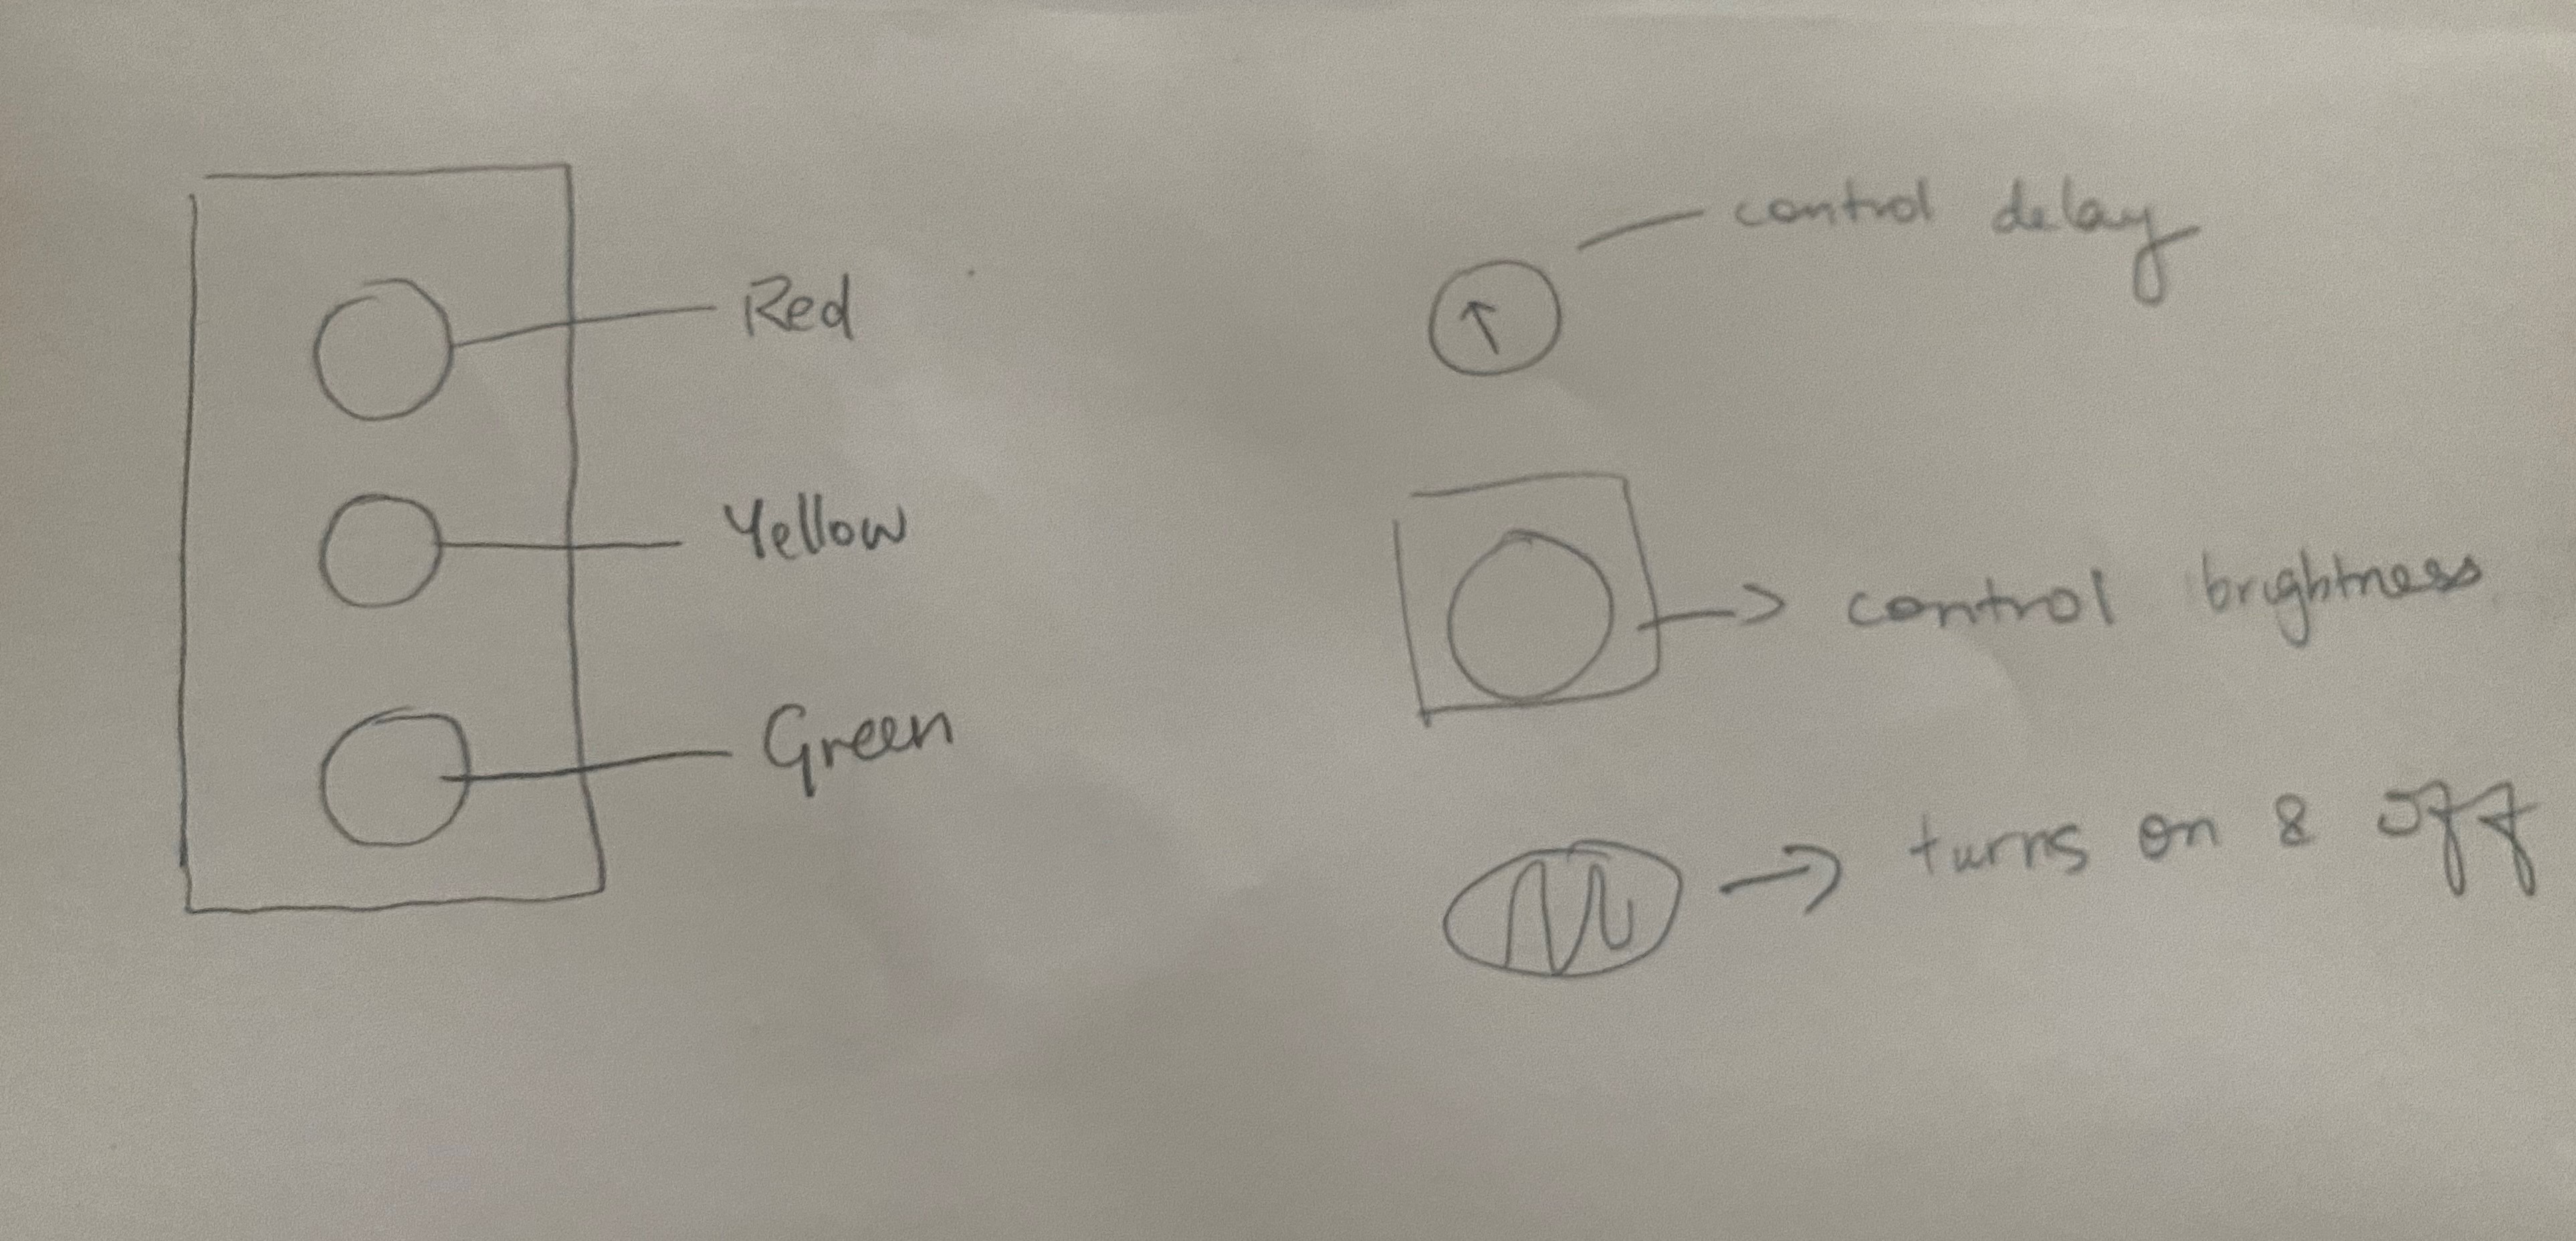 Red
Yellow
Green
control delay
control brightness
turns on & off